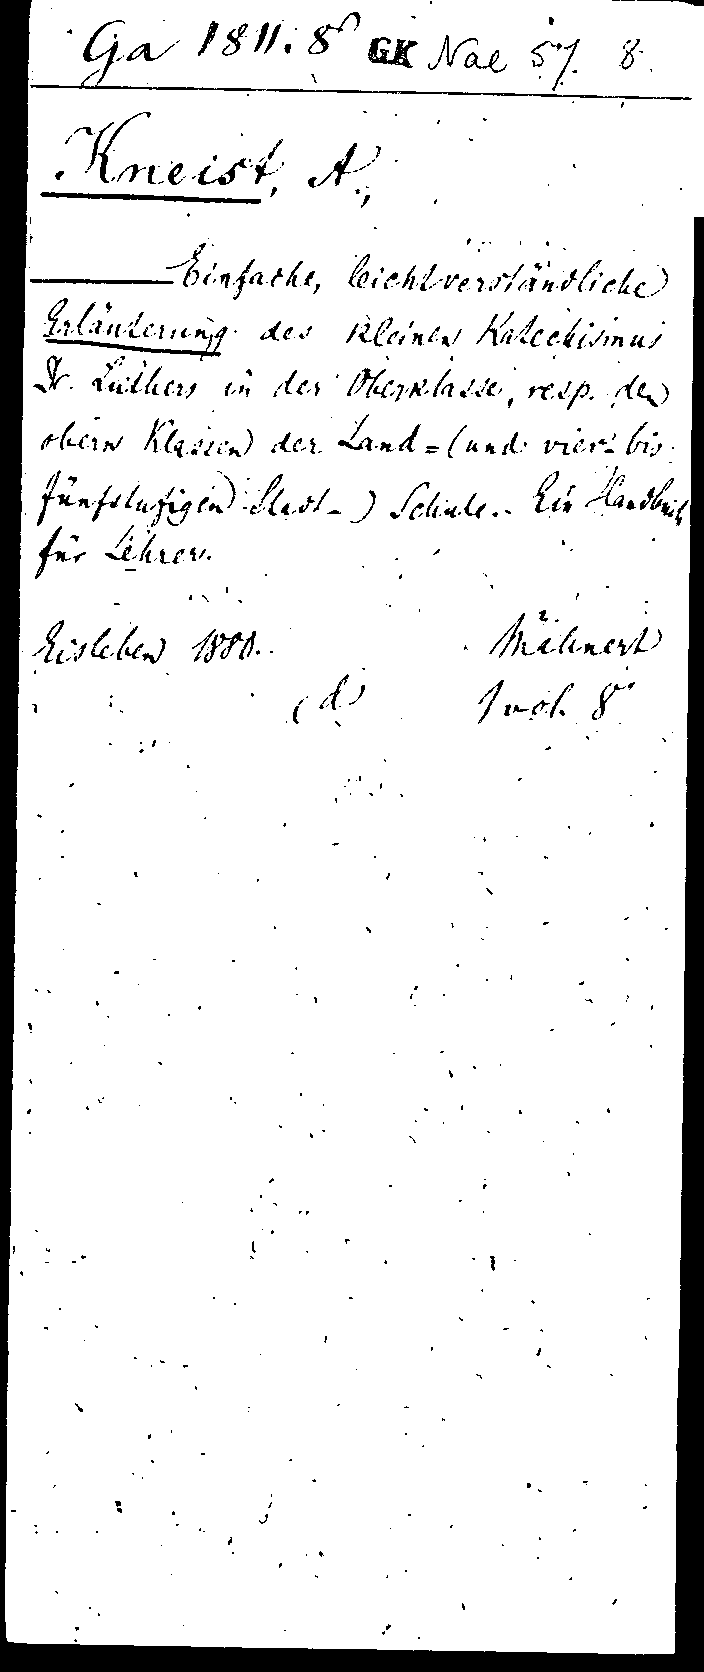 Ga 1811. 8° GK Nae 57. 8.
Kneist, A.,
Einfache, leichtverständliche
Erläuterung des kleinen Katechismus
Dr. Luthers in der Oberklasse, resp. den
obern Klassen der Land-(und vier- bis
fünfstufigen Stadt-) Schule. Ein Handbuch
für Lehrer.
Eisleben 1880. Mähnert
(d) 1 vol. 8°